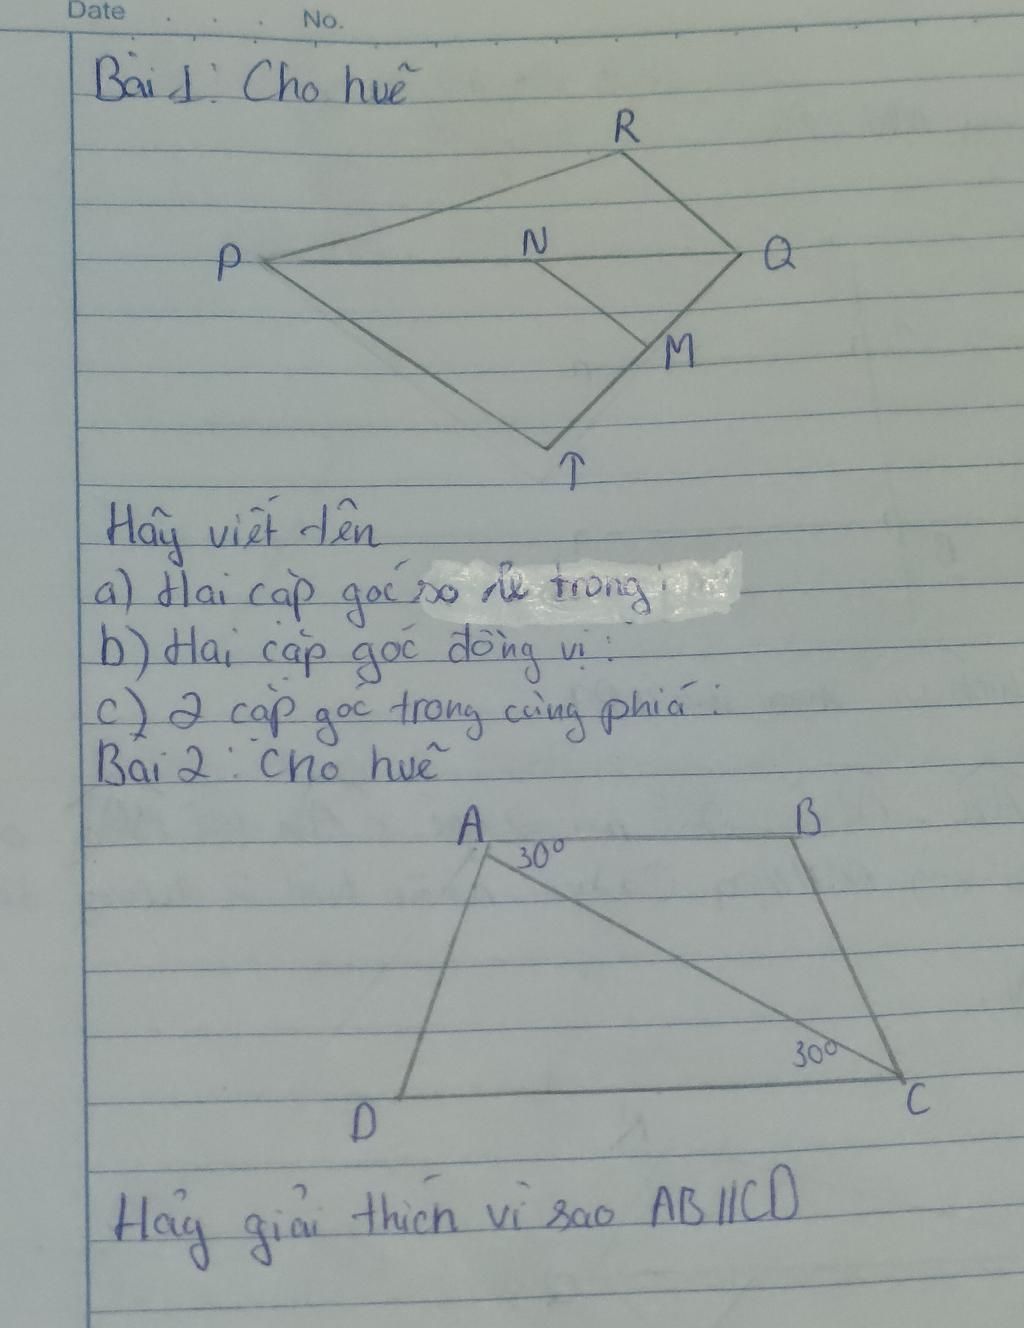 Date . . . No.
Bài 1: Cho huẽ
R
P N Q
M
T
Hãy viết tên
a) Hai cặp góc so le trong:
b) Hai cặp góc đồng vị:
c) 2 cặp góc trong cùng phiá:
Bài 2: Cho huẽ
A B
30°
30°
D C
Hảy giải thích vì sao AB//CD